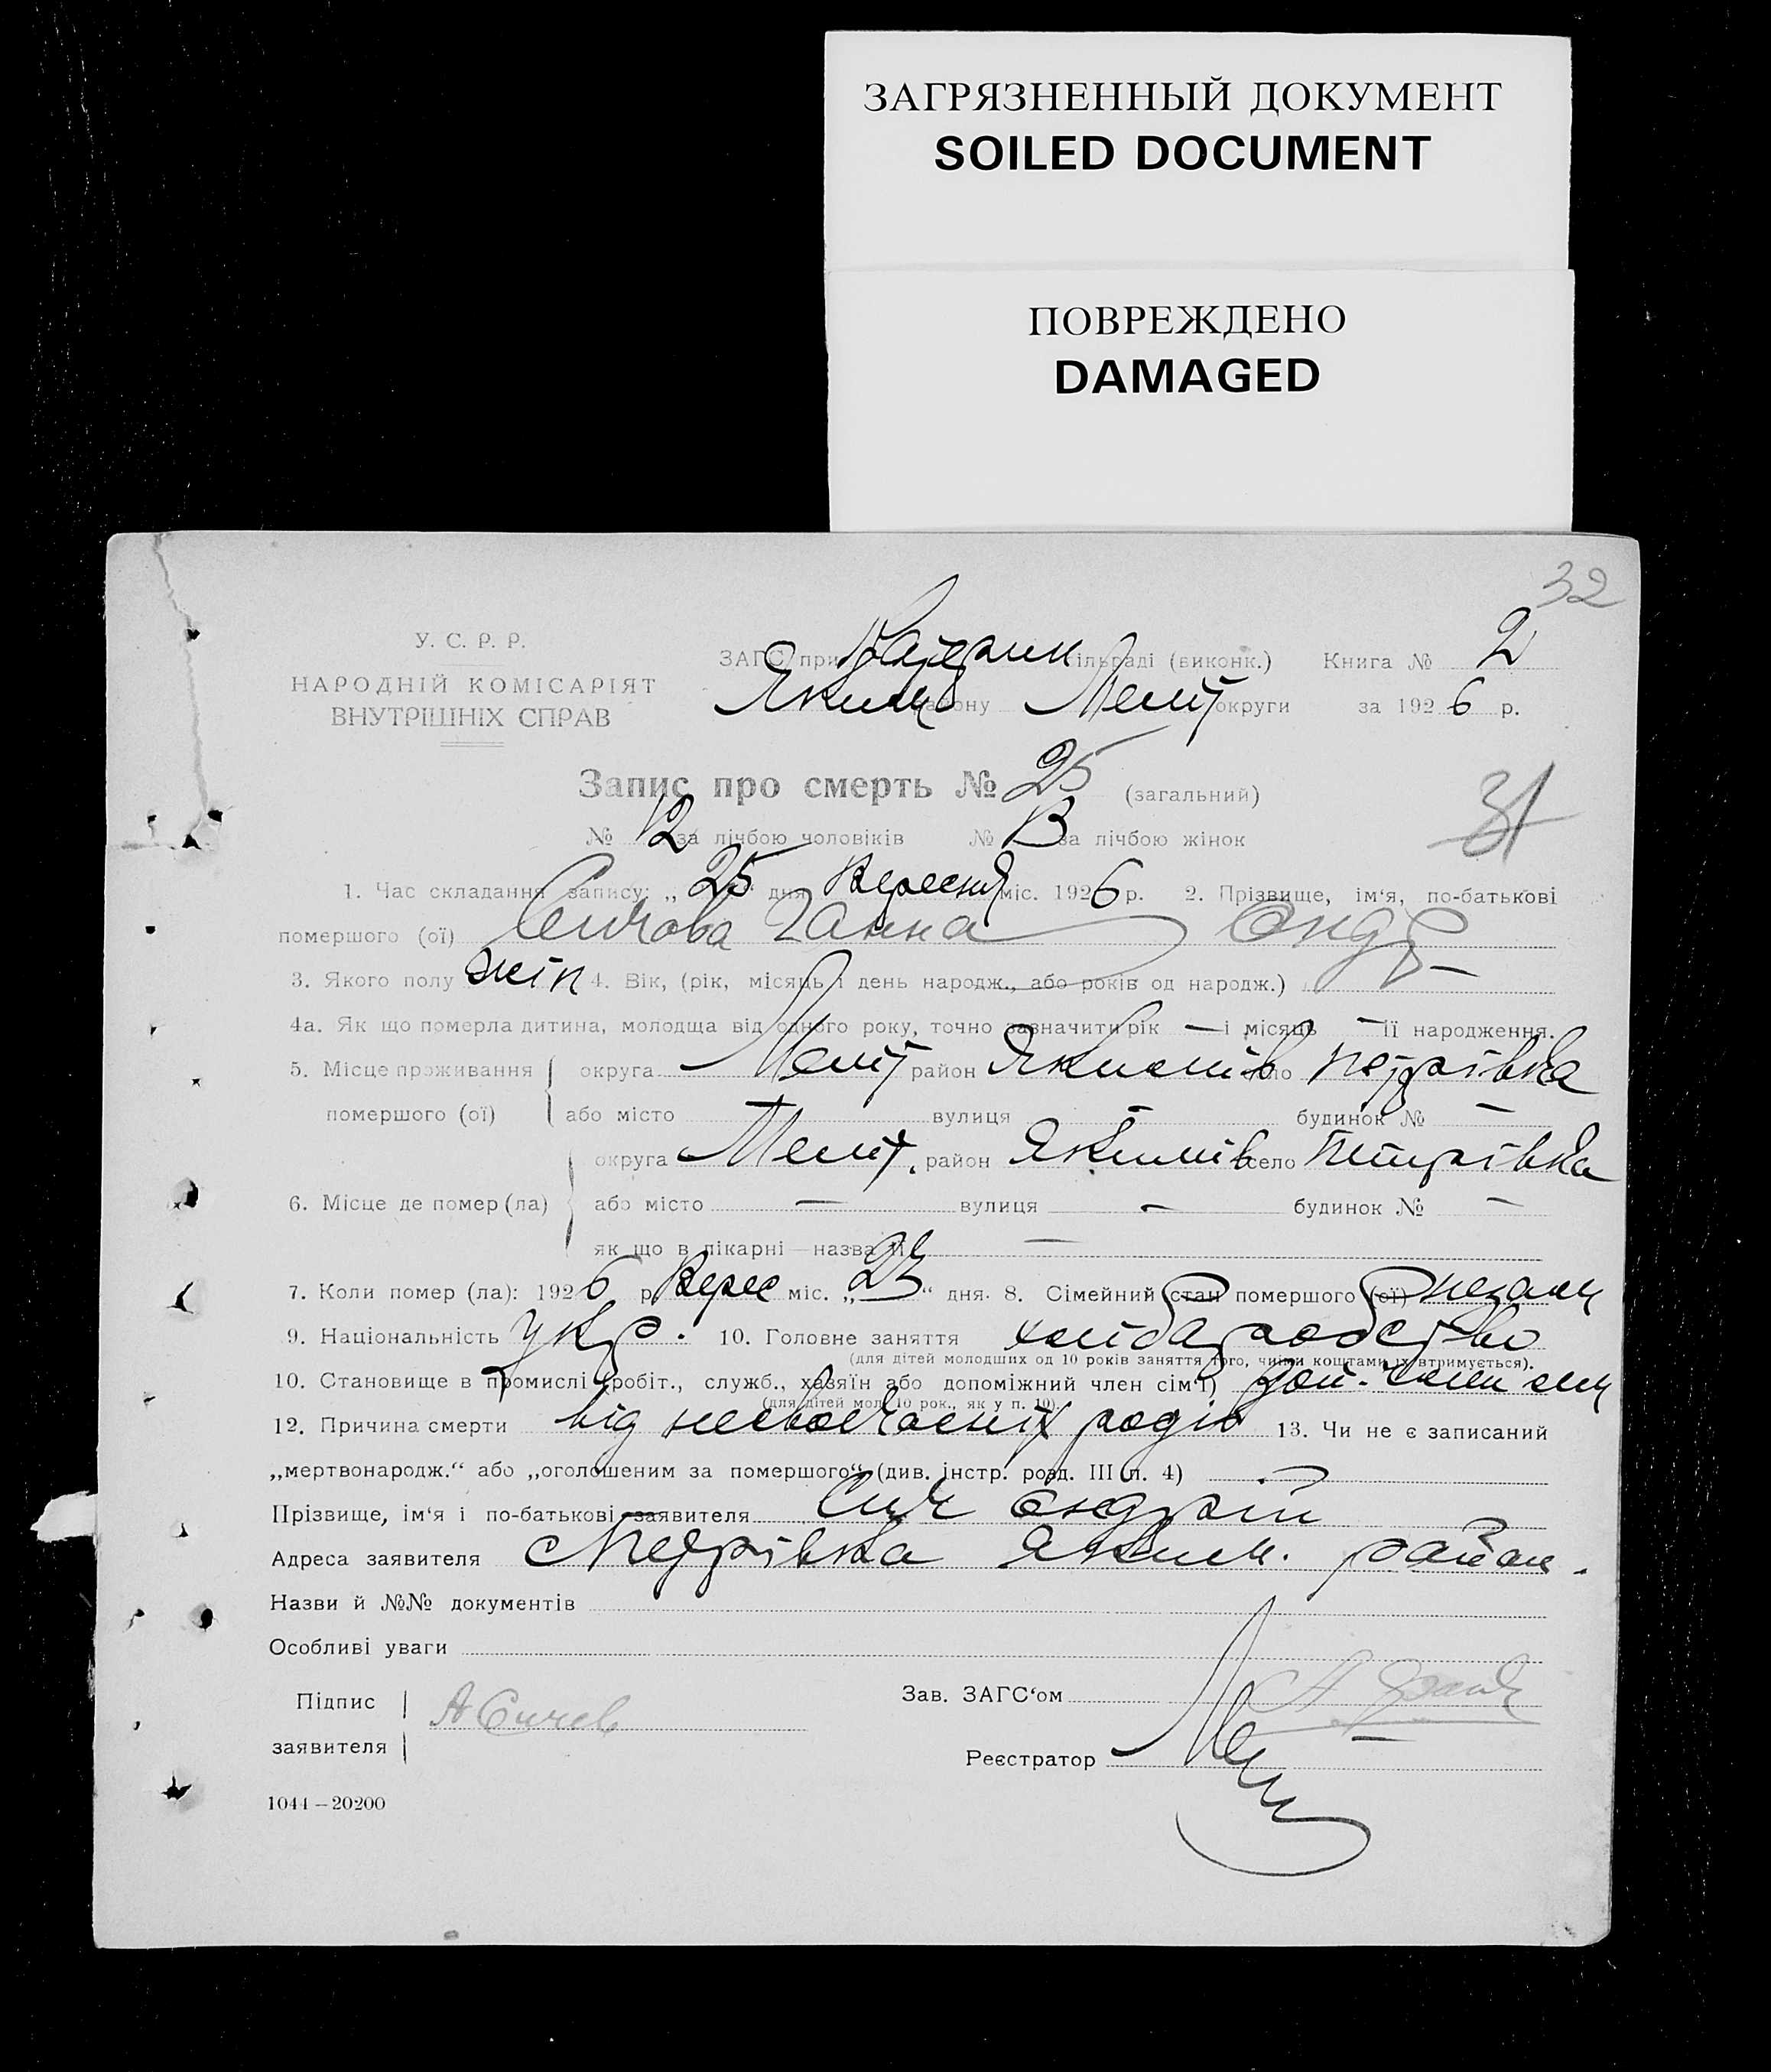 ЗАГРЯЗНЕННЫЙ ДОКУМЕНТ
SOILED DOCUMENT
ПОВРЕЖДЕНО
DAMAGED
32
У. С. Р. Р.
НАРОДНІЙ КОМІСАРІЯТ
ВНУТРІШНІХ СПРАВ
ЗАГС при сільраді (виконк.) Книга № 2
Якимів району Меліт округи за 1926 р.
Запис про смерть № 25 (загальний)
31
№ 12 за лічбою чоловіків № 13 за лічбою жінок
1. Час складання запису: „25" дня Вересня міс. 1926 р. 2. Прізвище, ім'я, по-батькові
помершого (ої) Сичова Ганна Андр
3. Якого полу жін 4. Вік, (рік, місяць і день народж., або років од народж.) —
4а. Як що померла дитина, молодша від одного року, точно зазначити рік — і місяць — її народження.
5. Місце проживання округа Меліт район Якимів село Петрівка
помершого (ої) або місто — вулиця — будинок № —
округа Меліт. район Якимів село Петрівка
6. Місце де помер (ла) або місто — вулиця — будинок № —
як що в лікарні — назва її —
7. Коли помер (ла): 1926 р. Верес міс. „23" дня. 8. Сімейний стан помершого (ої)
9. Національність укр. 10. Головне заняття хлібаробство
(для дітей молодших од 10 років заняття того, чиїми коштами їх втримується).
10. Становище в промислі (робіт., служб., хазяїн або допоміжний член сім'ї)
(для дітей мол. 10 рок., як у п. 10).
12. Причина смерти від несвоєчасних родів 13. Чи не є записаний
„мертвонародж." або „оголошеним за помершого" (див. інстр. розд. III п. 4) —
Прізвище, ім'я і по-батькові заявителя Сич Андрій
Адреса заявителя с Петрівка Яким. район.
Назви й №№ документів
Особливі уваги
Підпис
заявителя А Сичев
Зав. ЗАГС'ом
Реєстратор
1044 – 20200